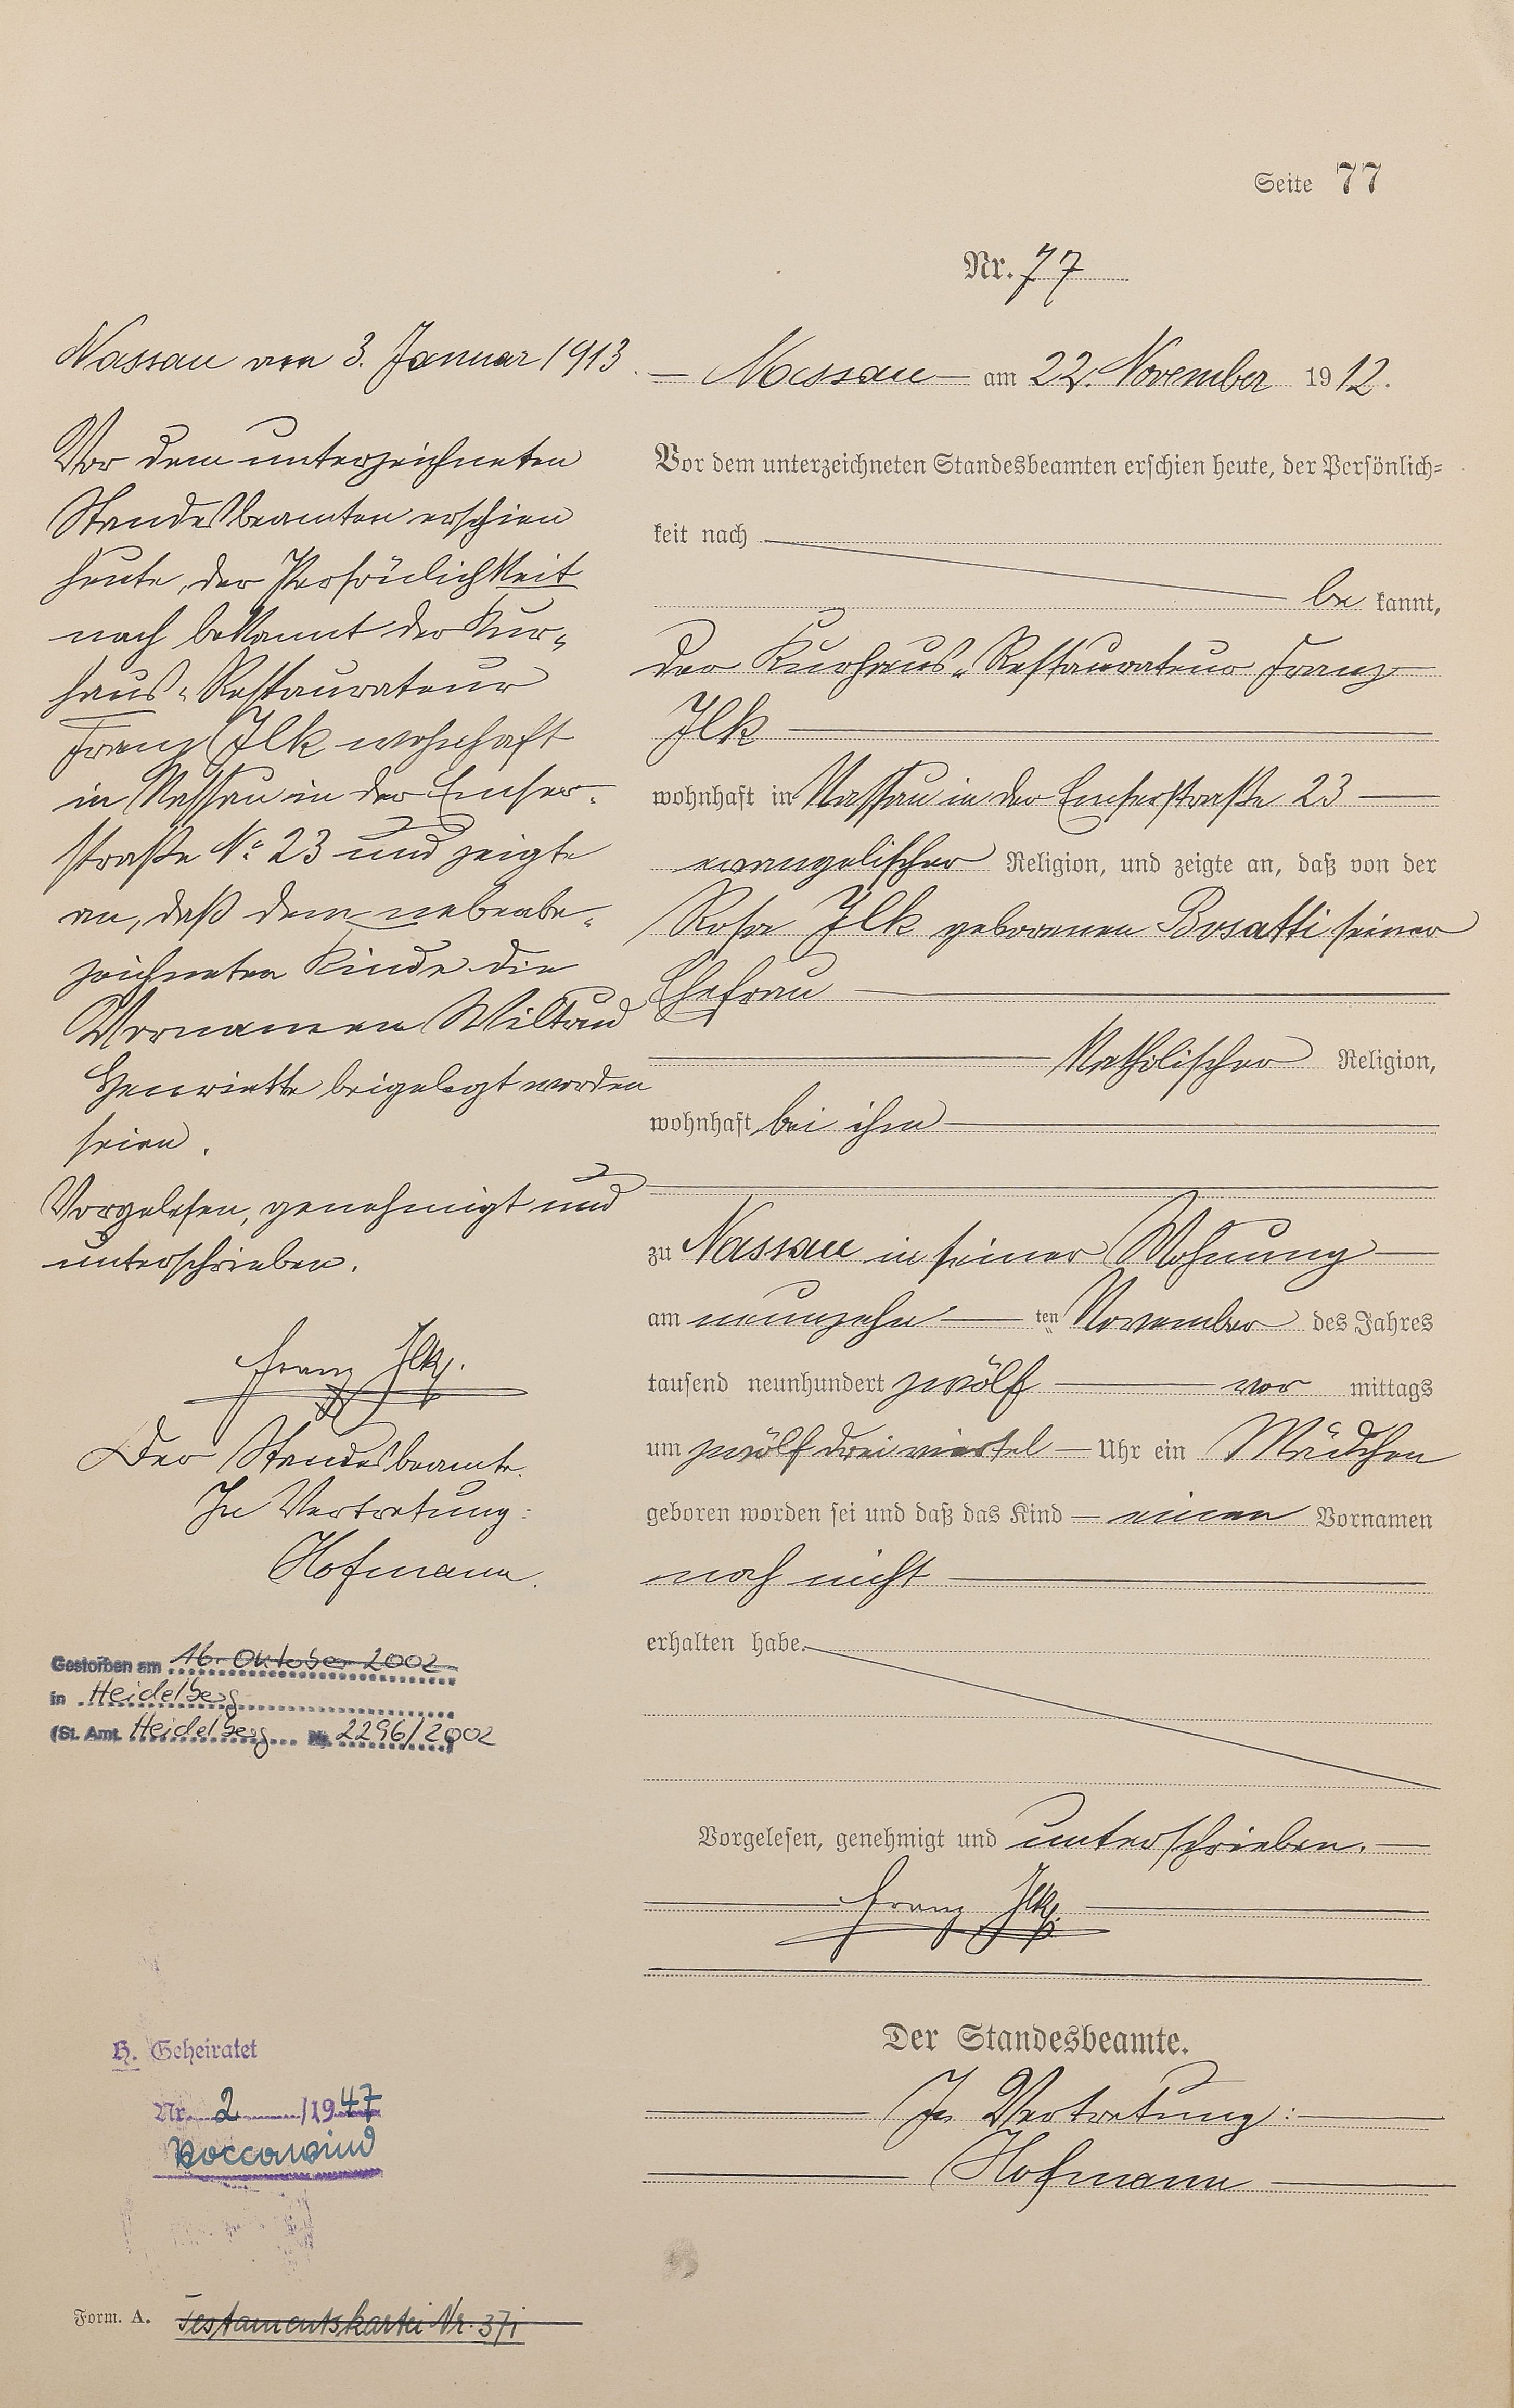 Seite 77
Nr. 77
Nassau am 3. Januar 1913.
Vor dem unterzeichneten
Standesbeamten erschien
heute, der Persönlichkeit
nach bekannt der Kur-
haus-Restaurateur
Franz Ilk wohnhaft
in Nassau in der Emser-
straße No 23 und zeigte
an, daß dem nebenbe-
zeichneten Kinde die
Vornamen Wiltrud
Henriette beigelegt worden
seien.
Vorgelesen, genehmigt und
unterschrieben.
Franz Ilk.
Der Standesbeamte.
In Vertretung:
Hofmann.
Gestorben am 16. Oktober 2002
in Heidelberg
(St. Amt. Heidelberg Nr. 2296/2002
H. Geheiratet
Nr. 2 /1947
Form. A. Testamentskartei Nr. 371
Nassau am 22. November 1912.
Vor dem unterzeichneten Standesbeamten erschien heute, der Persönlich-
keit nach
be kannt,
der Kurhaus-Restaurateur Franz
Ilk
wohnhaft in Nassau in der Emserstraße 23
evangelischer Religion, und zeigte an, daß von der
Rosa Ilk geborenen Bosatti seiner
Ehefrau
katholischer Religion,
wohnhaft bei ihm
zu Nassau in seiner Wohnung
am neunzehn ten November des Jahres
tausend neunhundert zwölf vor mittags
um zwölf drei viertel Uhr ein Mädchen
geboren worden sei und daß das Kind einen Vornamen
noch nicht
erhalten habe.
Vorgelesen, genehmigt und unterschrieben.
Franz Ilk.
Der Standesbeamte.
In Vertretung:
Hofmann